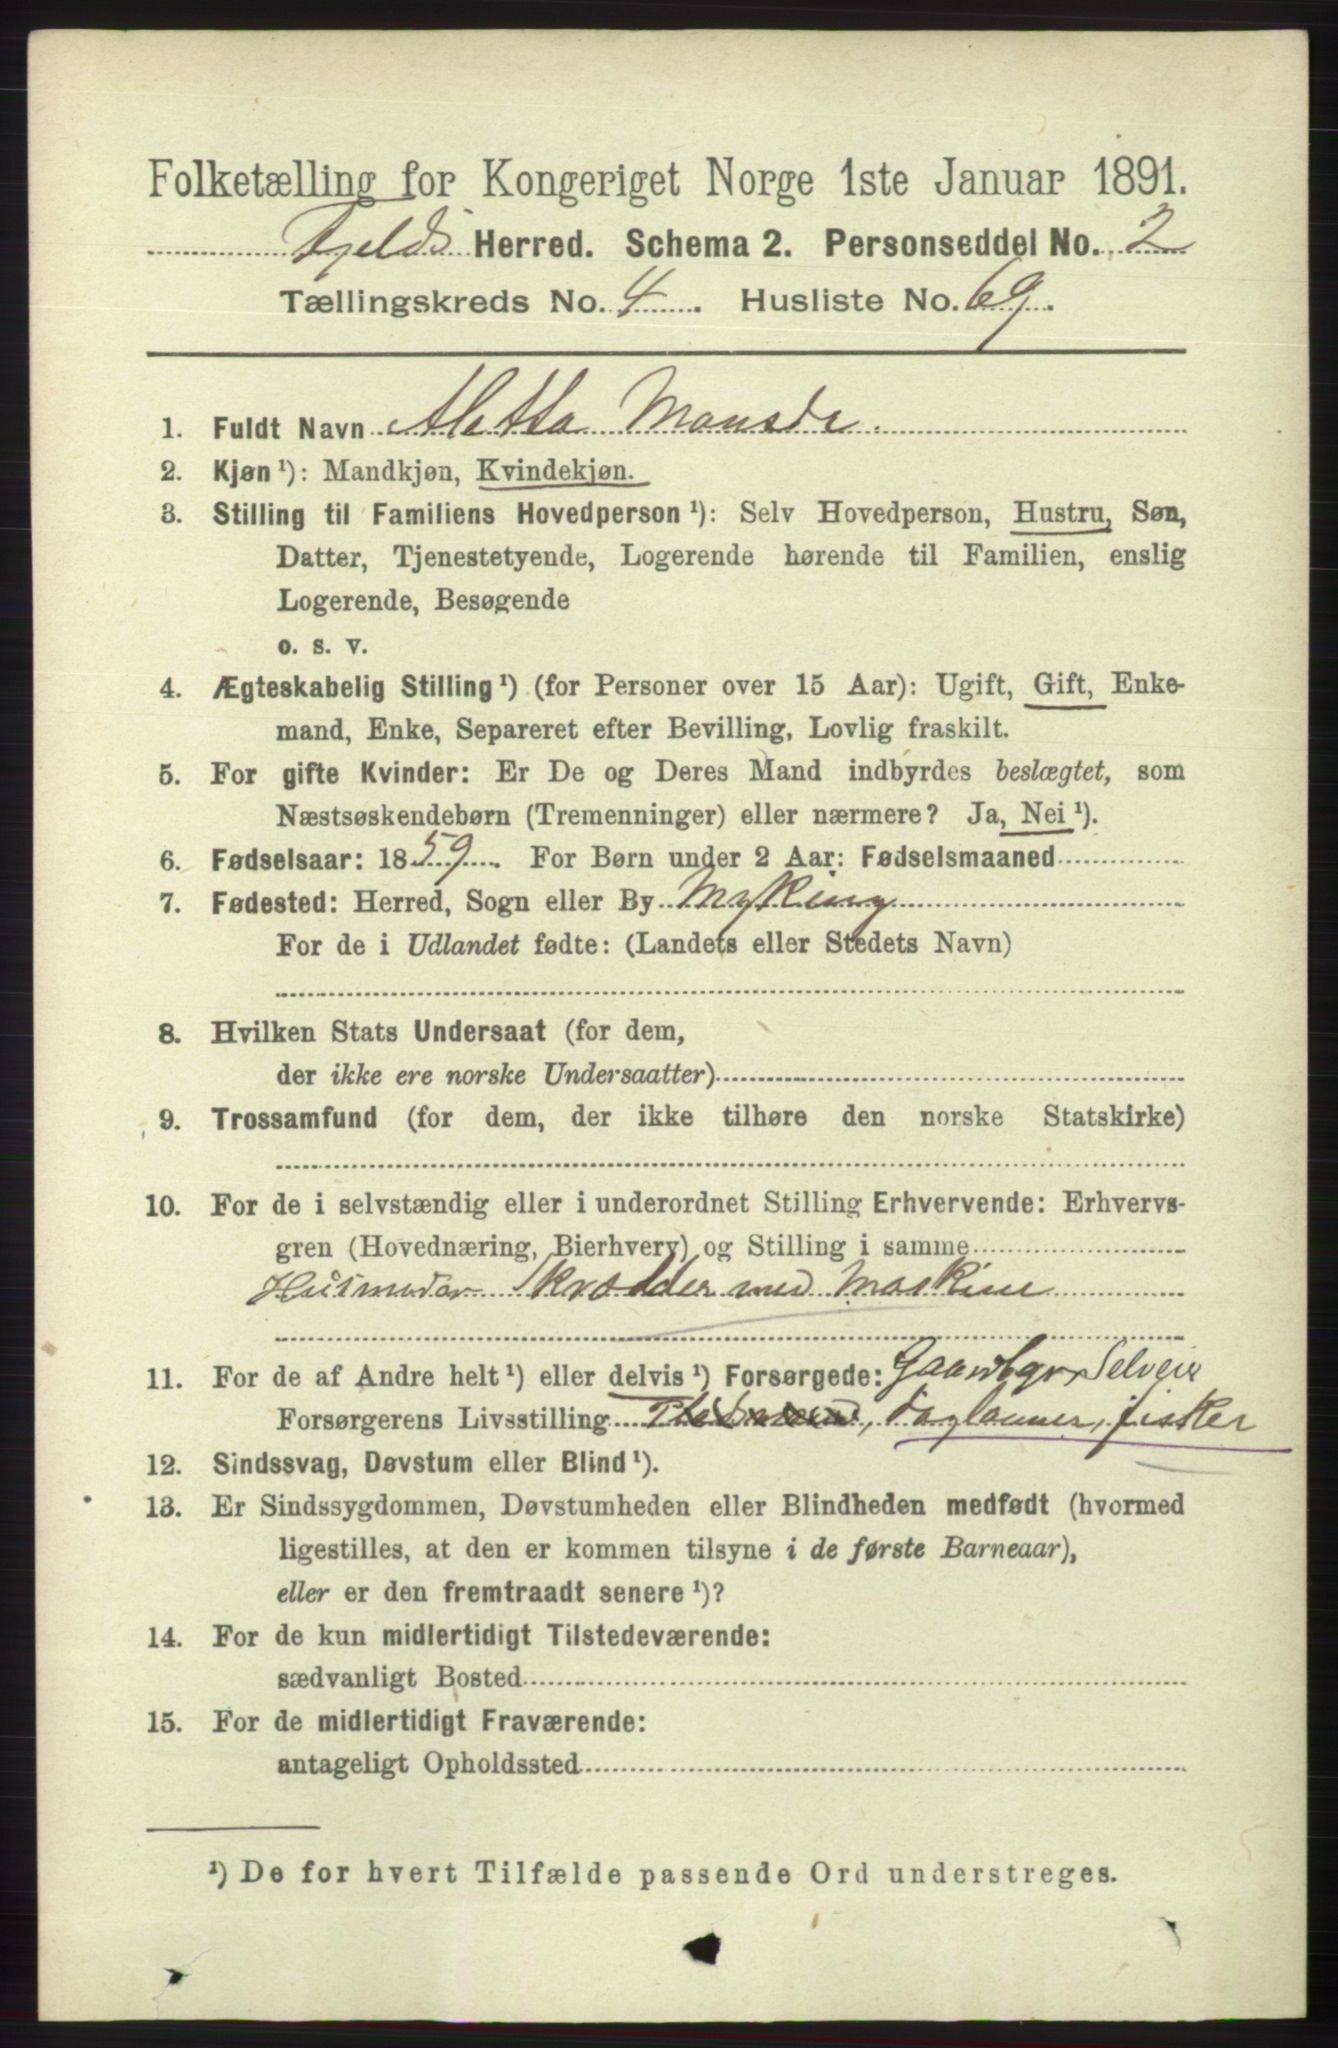 Folketælling for Kongeriget Norge 1ste Januar 1891.
Fjelds Herred. Schema 2. Personseddel No. 2
Tællingskreds No. 4. Husliste No. 69.
1. Fuldt Navn Aletta Monsdr.
2. Kjøn ¹): Mandkjøn, Kvindekjøn.
3. Stilling til Familiens Hovedperson ¹): Selv Hovedperson, Hustru, Søn,
Datter, Tjenestetyende, Logerende hørende til Familien, enslig
Logerende, Besøgende
o. s. v.
4. Ægteskabelig Stilling ¹) (for Personer over 15 Aar): Ugift, Gift, Enke-
mand, Enke, Separeret efter Bevilling, Lovlig fraskilt.
5. For gifte Kvinder: Er De og Deres Mand indbyrdes beslægtet, som
Næstsøskendebørn (Tremenninger) eller nærmere? Ja, Nei ¹).
6. Fødselsaar: 1859. For Børn under 2 Aar: Fødselsmaaned
7. Fødested: Herred, Sogn eller By Myking
For de i Udlandet fødte: (Landets eller Stedets Navn)
8. Hvilken Stats Undersaat (for dem,
der ikke ere norske Undersaatter)
9. Trossamfund (for dem, der ikke tilhøre den norske Statskirke)
10. For de i selvstændig eller i underordnet Stilling Erhvervende: Erhvervs-
gren (Hovednæring, Bierhverv) og Stilling i samme
Husmoder Skrædder med Maskine
11. For de af Andre helt ¹) eller delvis ¹) Forsørgede: Gaardbgr. Selveier
Forsørgerens Livsstilling , Daglønner, fisker
12. Sindssvag, Døvstum eller Blind ¹).
13. Er Sindssygdommen, Døvstumheden eller Blindheden medfødt (hvormed
ligestilles, at den er kommen tilsyne i de første Barneaar),
eller er den fremtraadt senere ¹)?
14. For de kun midlertidigt Tilstedeværende:
sædvanligt Bosted
15. For de midlertidigt Fraværende:
antageligt Opholdssted
¹) De for hvert Tilfælde passende Ord understreges.